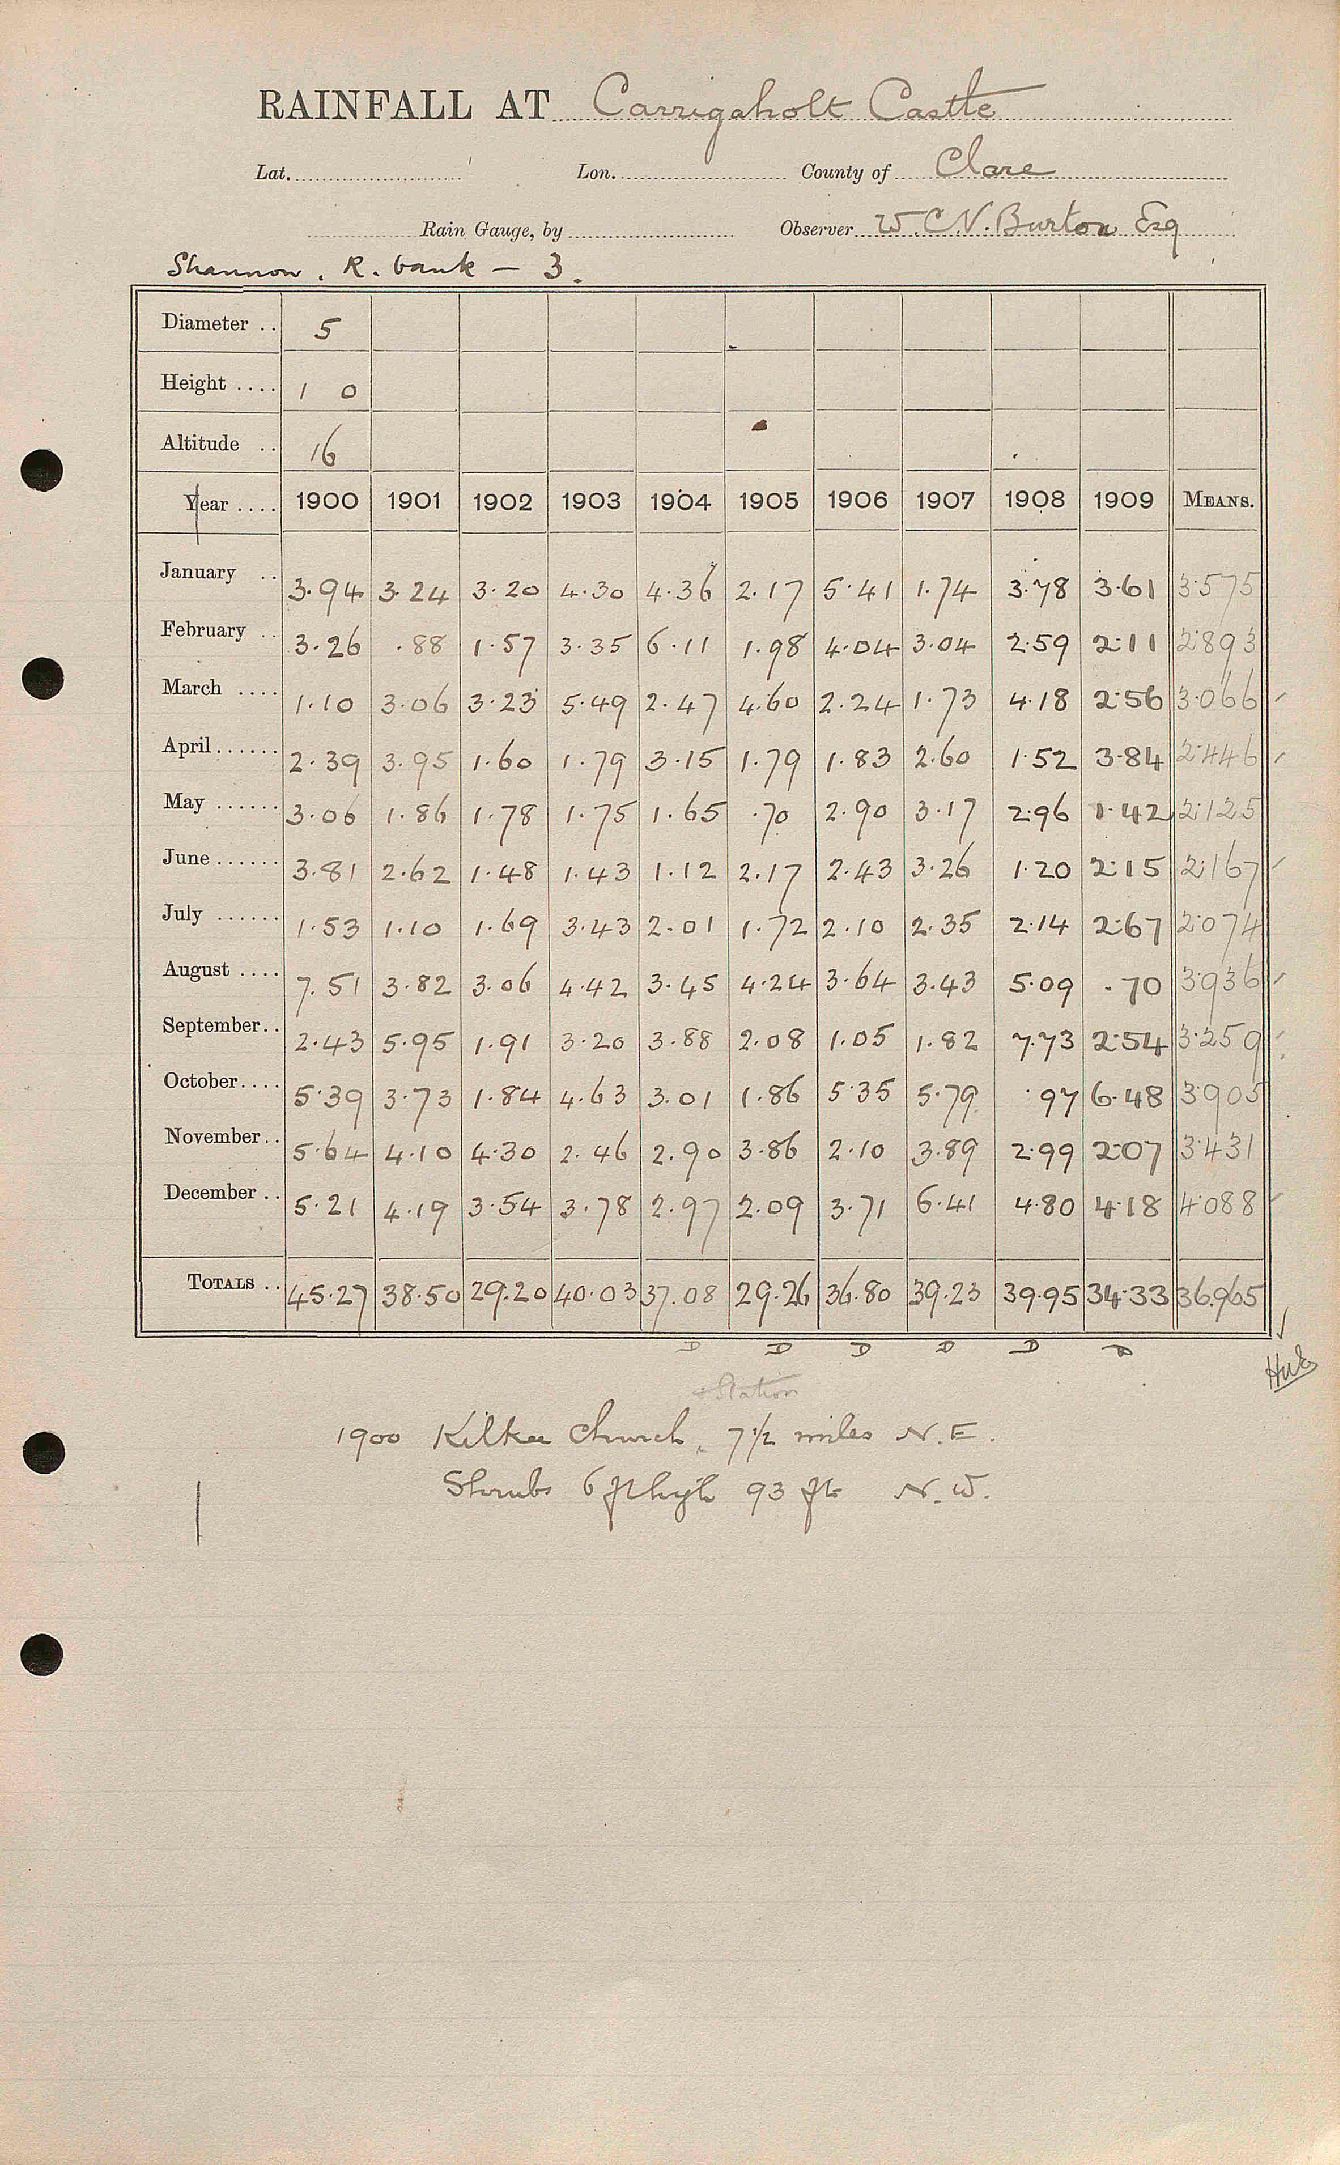 RAINFALL AT Carrigaholt Castle
Lat. Lon. County of Clare
Rain Gauge, by Observer W. C. V. Burton Esq
Shannon. R. bank — 3.
Diameter .. 5
Height .... 1 0
Altitude .. 16
Year .... 1900 1901 1902 1903 1904 1905 1906 1907 1908 1909 MEANS.
January .. 3.94 3.24 3.20 4.30 4.36 2.17 5.41 1.74 3.78 3.61 3.575
February .. 3.26 .88 1.57 3.35 6.11 1.98 4.04 3.04 2.59 2.11 2.893
March .... 1.10 3.06 3.23 5.49 2.47 4.60 2.24 1.73 4.18 2.56 3.066
April ...... 2.39 3.95 1.60 1.79 3.15 1.79 1.83 2.60 1.52 3.84 2.446
May ...... 3.06 1.86 1.78 1.75 1.65 .70 2.90 3.17 2.96 1.42 2.125
June ...... 3.81 2.62 1.48 1.43 1.12 2.17 2.43 3.26 1.20 2.15 2.167
July ...... 1.53 1.10 1.69 3.43 2.01 1.72 2.10 2.35 2.14 2.67 2.074
August .... 7.51 3.82 3.06 4.42 3.45 4.24 3.64 3.43 5.09 .70 3.936
September .. 2.43 5.95 1.91 3.20 3.88 2.08 1.05 1.82 7.73 2.54 3.259
October .... 5.39 3.73 1.84 4.63 3.01 1.86 5.35 5.79 .97 6.48 3.905
November .. 5.64 4.10 4.30 2.46 2.90 3.86 2.10 3.89 2.99 2.07 3.431
December .. 5.21 4.19 3.54 3.78 2.97 2.09 3.71 6.41 4.80 4.18 4.088
TOTALS .. 45.27 38.50 29.20 40.03 37.08 29.26 36.80 39.23 39.95 34.33 36.965
D D D D D D
Station
1900 Kilkee Church, 7½ miles N.E.
Shrubs 6 ft high 93 ft N.W.